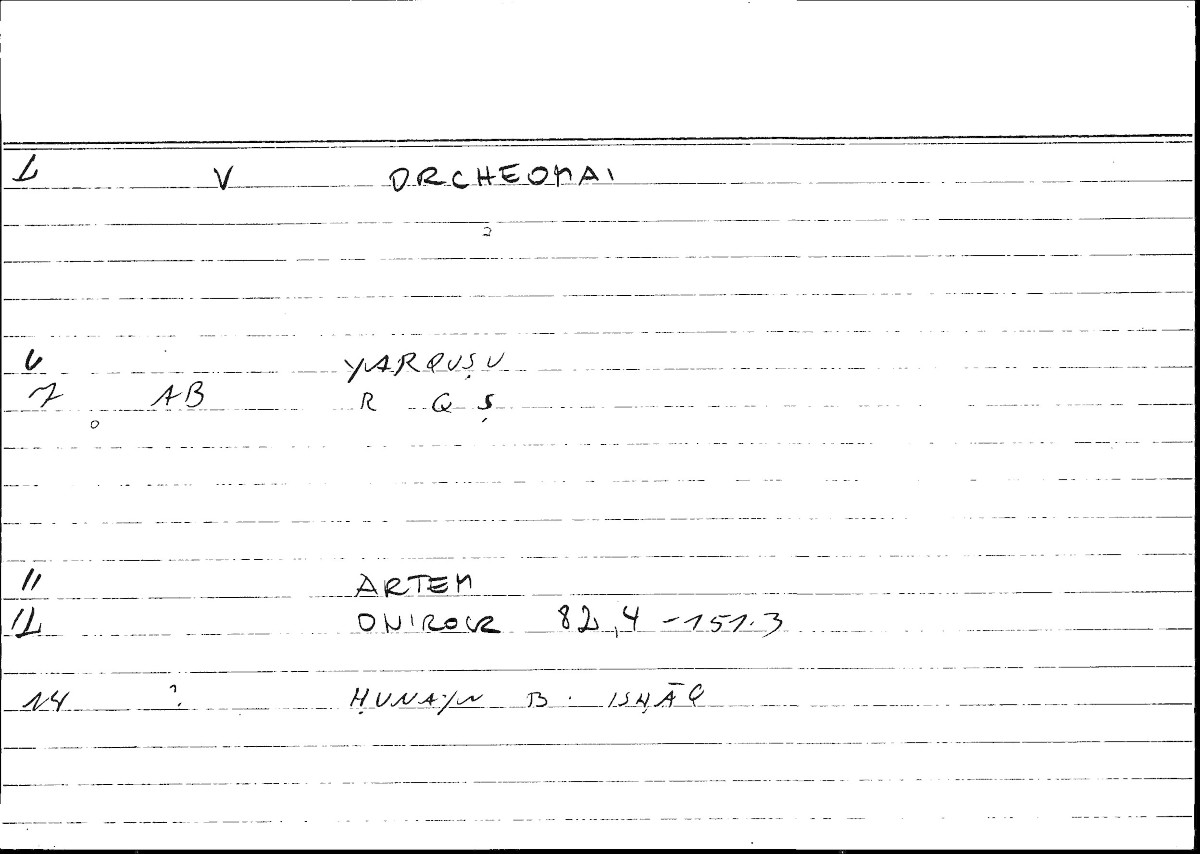 1 V ORCHEOMAI
2
6 YARQUṢU
7 AB R Q Ṣ
0
11 ARTEM
12 ONIROCR 82,4 - 151.3
14 ? ḤUNAYN B. ISḤĀQ